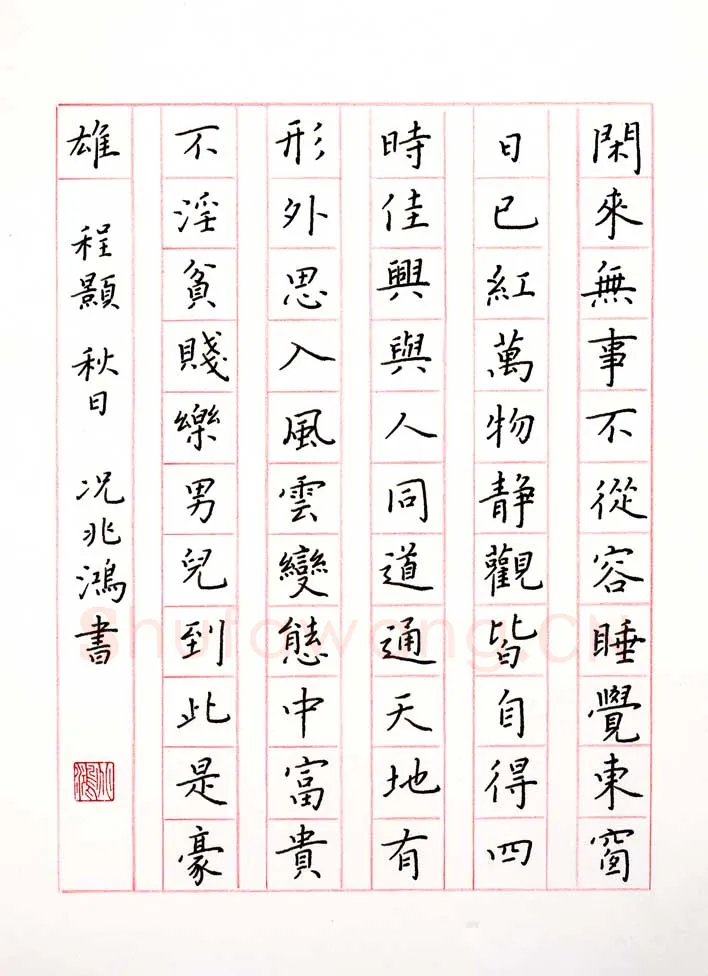 閑來無事不從容睡覺東窗
日已紅萬物靜觀皆自得四
時佳興與人同道通天地有
形外思入風雲變態中富貴
不淫貧賤樂男兒到此是豪
雄
程顥 秋日 況兆鴻書
Shufawang.CN